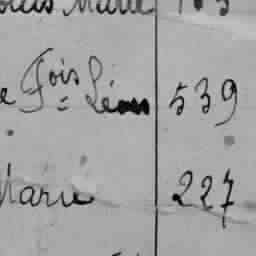 Marie
e Fois Léon 539
Marie 227